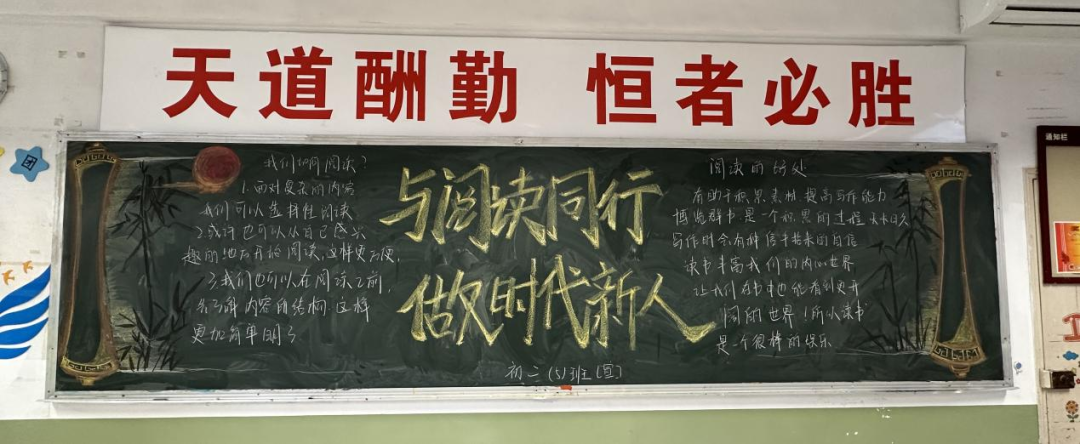 天道酬勤 恒者必胜
通知栏
与阅读同行
做时代新人
我们如何阅读?
1.面对复杂的内容
我们可以选择性阅读
2.或许也可以从自己感兴
趣的地方开始阅读,这样更方便,
3.我们也可以在阅读之前,
先了解内容和结构.这样
更加简单明了
阅读的好处
有助于积累素材,提高写作能力
博览群书是一个积累的过程
写作时会有种信手拈来的自信
读书丰富我们的内心世界
让我们在书本也能看到更开
阔的世界!所以读书
是一个很棒的娱乐
初二(5)班(宣)
团